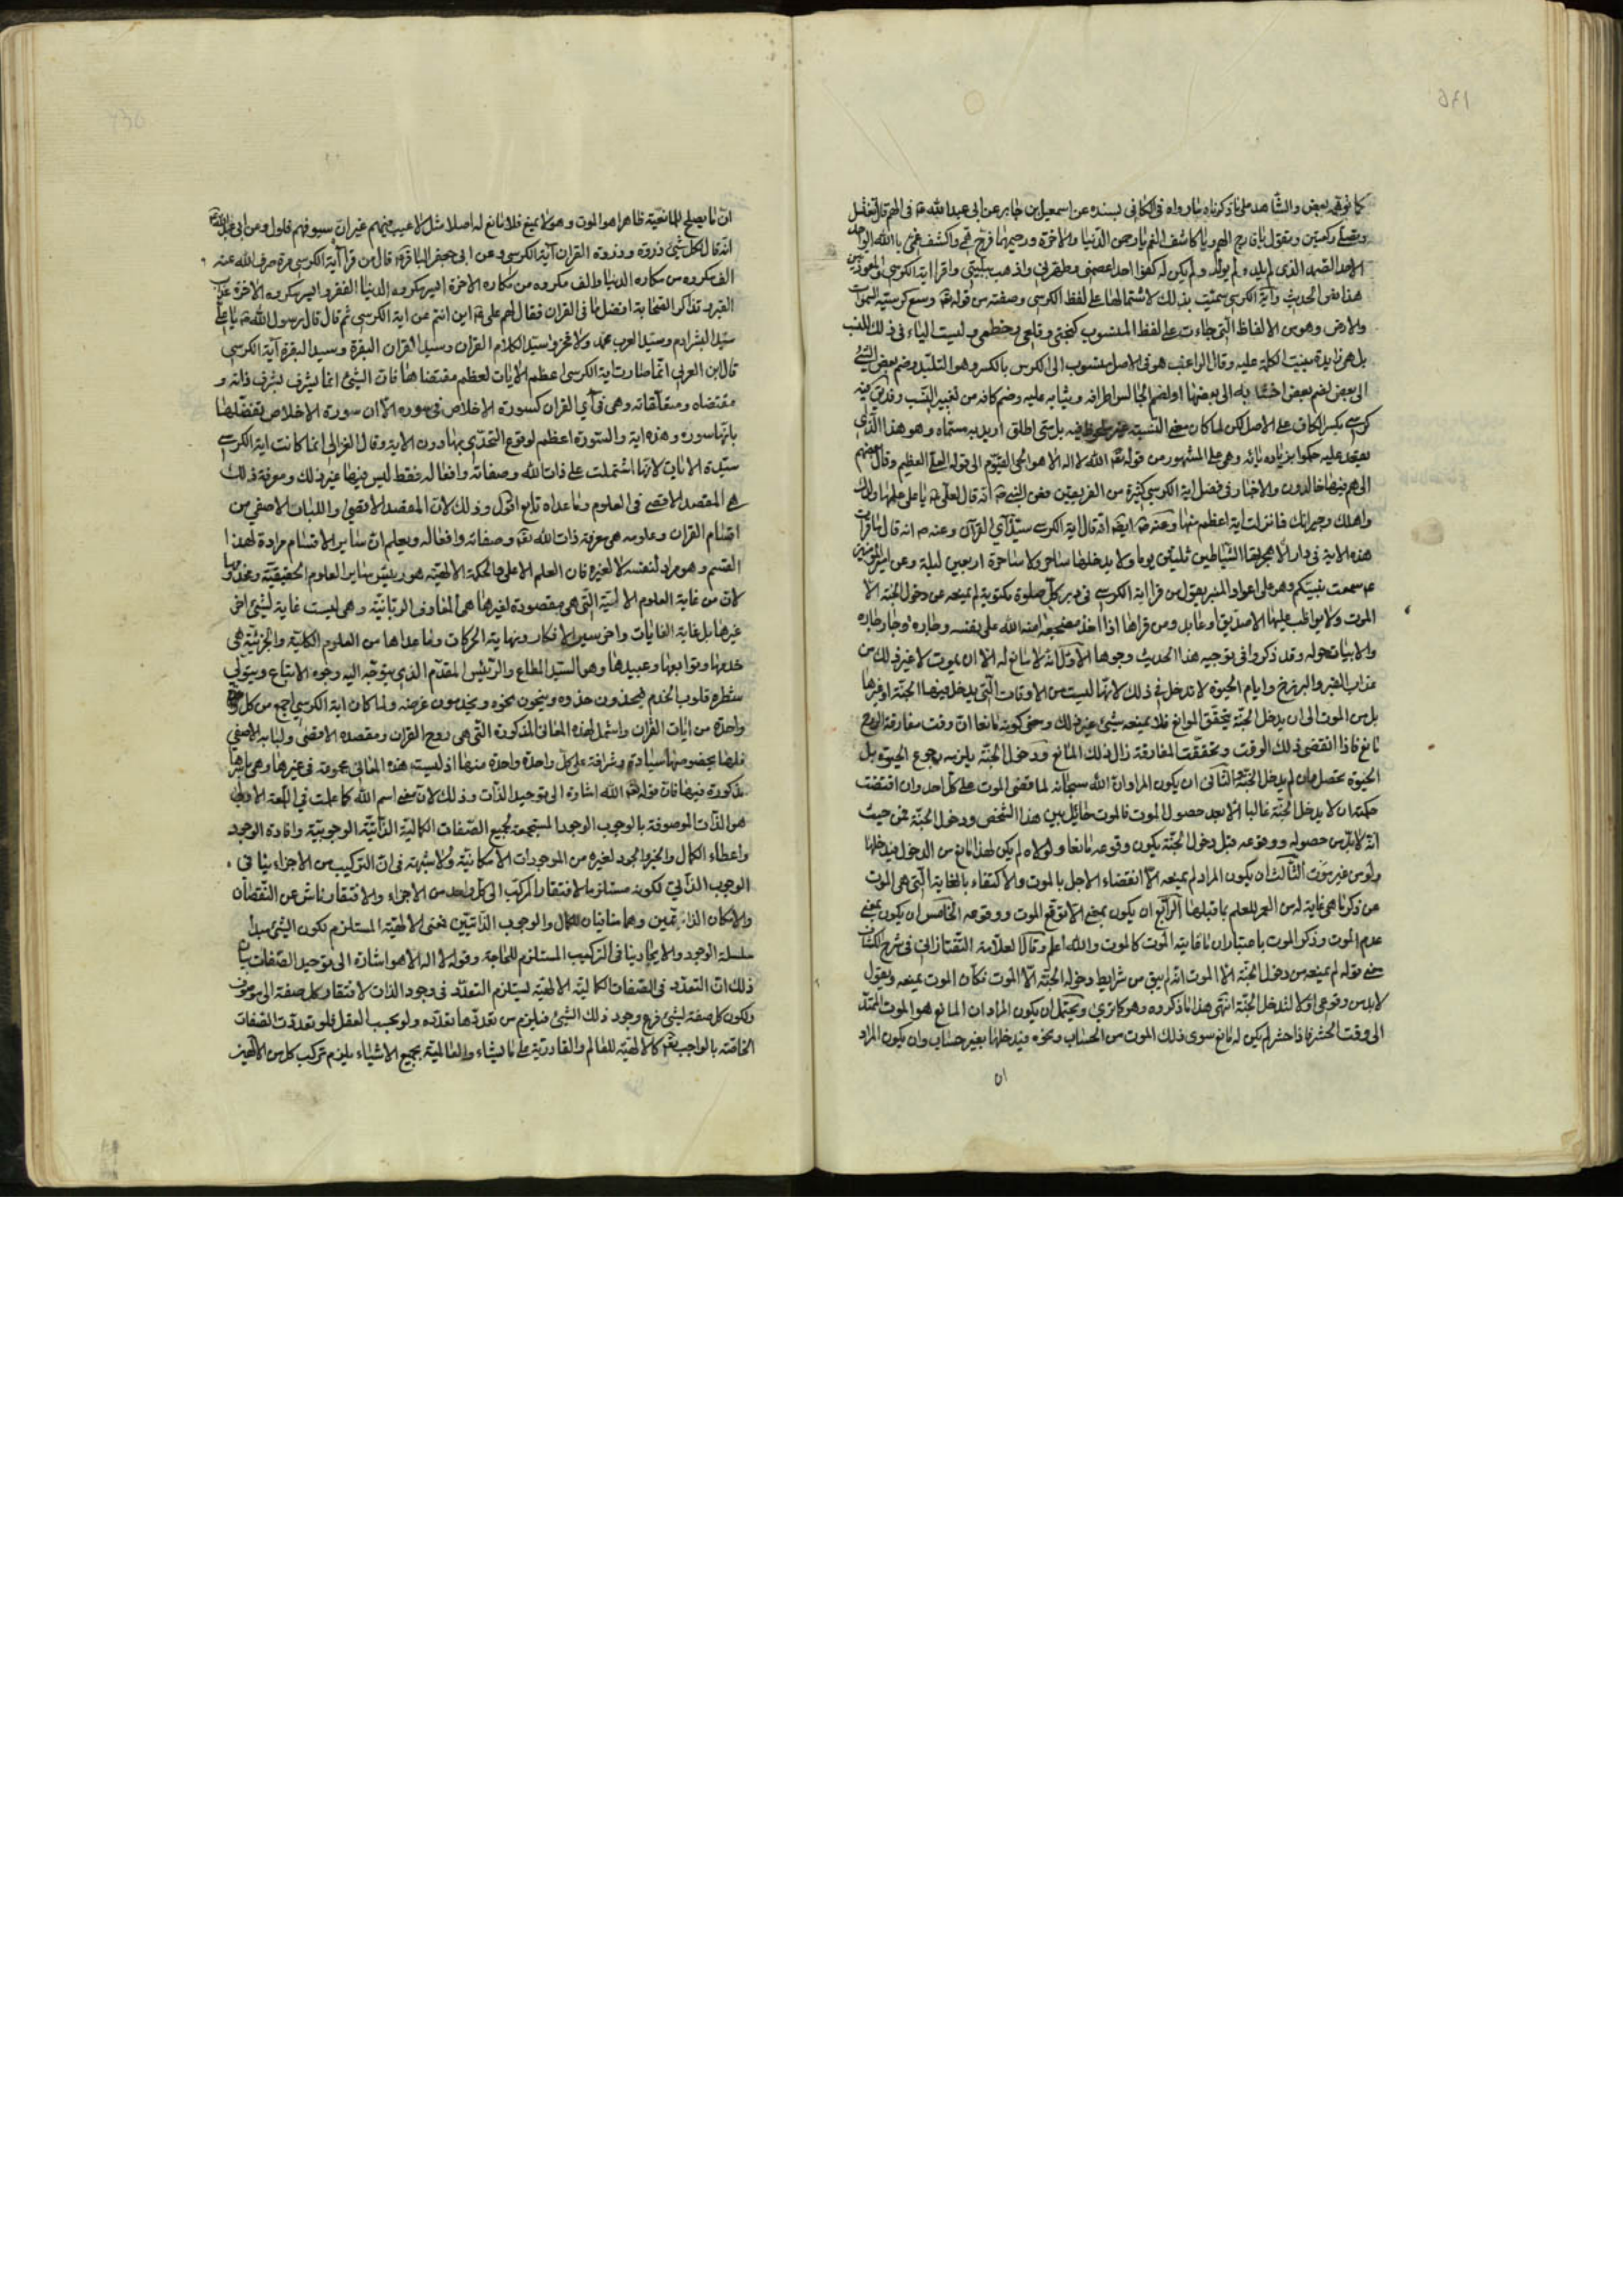 كما توهمه بعض والشاهد على ما ذكرناه ما رواه في الكافي بسنده عن اسمعيل بن جابر عن ابي عبد الله ع في الهم قال تغتسل
وتصلي ركعتين وتقول يا فارج الهم ويا كاشف الغم يا رحمن الدنيا والاخرة ورحيمهما فرج همي واكشف غمي يا الله الواحد
الاحد الصمد الذي لم يلد ولم يولد ولم يكن له كفوا احد اعصمني وطهرني واذهب ببليتي واقرا اية الكرسي والمعوذتين
هذا نص الحديث واية الكرسي سميت بذلك لاشتمالها على لفظ الكرسي وصفته من قوله تع وسع كرسيه السموات
والارض وهو من الالفاظ التي جاءت على لفظ المنسوب كبختي وقلعي وخطمي وليست الياء في ذلك للنسب
بل هي زايدة بنيت الكلمة عليه وقال الراغب هو في الاصل منسوب الى الكرس بالكسر وهو التلبد وضم بعض الشئ
الى بعض لضم بعض اخشابه الى بعضها او لضم الجالس اطرافه وثيابه عليه وضم كافه من تغيير النسب وقد يق فيه
كرسي بكسر الكاف على الاصل لكن لما كان معنى النسبة غير ملحوظ فيه بل متى اطلق اريد به مسماه وهو هذا الذي
يقعد عليه حكموا بزيادة يائه وهي على المشهور من قوله تع الله لا اله الا هو الحي القيوم الى قوله العلي العظيم وقال بعضهم
الى هم فيها خالدون والاخبار في فضل اية الكرسي كثيرة من الفريقين فعن النبي ص انه قال لعلي ع يا علي علمها ولدك
واهلك وجيرانك فما نزلت اية اعظم منها وعنه ص ايضا انه قال اية الكرسي سيد آي القرآن وعنه ص انه قال ما قرأت
هذه الاية في دار الا هجرتها الشياطين ثلثين يوما ولا يدخلها ساحر ولا ساحرة اربعين ليلة وعن امير المؤمنين
ع سمعت نبيكم وهو على اعواد المنبر يقول من قرا اية الكرسي في دبر كل صلوة مكتوبة لم يمنعه عن دخول الجنة الا
الموت ولا يواظب عليها الا صديق او عابد ومن قراها اذا اخذ مضجعه امنه الله على نفسه وجاره وجار جاره
والابيات حوله وقد ذكروا في توجيه هذا الحديث وجوها الاول انه لا مانع له الا ان يموت لا غير ذلك من
عذاب القبر والبرزخ وايام الحيوة لا تدخل في ذلك لانها ليست من الاوقات التي يدخل فيها الجنة او غيرها
بل من الموت الى ان يدخل الجنة يتحقق الموانع فلا يمنعه شئ غير ذلك ومعنى كونه مانعا ان وقت مفارقة الروح
مانع فاذا انقضى ذلك الوقت وتحققت المفارقة زال ذلك المانع ودخول الجنة يلزمه رجوع الحيوة بل
الحيوة تحصل وان لم يدخل الجنة والثاني ان يكون المراد ان الله سبحانه لما قضى الموت على كل احد وان اقتضت
حكمته ان لا يدخل الجنة غالبا الا بعد حصول الموت فالموت حائل بين هذا الشخص ودخول الجنة فمن حيث
انه لا بد من حصوله ووقوعه قبل دخول الجنة يكون وقوعه مانعا ولولاه لم يكن لهذا مانع من الدخول فيدخلها
ولو من غير موت الثالث ان يكون المراد لم يمنعه الا انقضاء الاجل بالموت والاكتفاء بالغاية التي هي الموت
عن ذكر ما هي غاية له من العمر للعلم بما قبلها الرابع ان يكون بمعنى الا توقع الموت ووقوعه الخامس ان يكون بمعنى
عدم الموت وذكر الموت باعتبار ان ما غايته الموت كالموت والله اعلم وقال العلامة التفتازاني في شرح الكشاف
معنى قوله لم يمنعه من دخول الجنة الا الموت انه لم يبق من شرايط دخوله الجنة الا الموت فكان الموت يمنعه ويقول
لابد من وقوعي اولا لتدخل الجنة انتهى هذا ما ذكروه وهو كما ترى ويحتمل ان يكون المراد ان المانع هو الموت الممتد
الى وقت الحشر فاذا حشر لم يكن له مانع سوى ذلك الموت من الحساب ونحوه فيدخلها بغير حساب وان يكون المراد
ان
ان ما يصلح للمانعية ظاهرا هو الموت وهو لا يمنع فلا مانع له اصلا مثل لا عيب فيهم غير ان سيوفهم فلول وعن ابي عبد الله ع
انه قال لكل شئ ذروة وذروة القران آية الكرسي وعن ابي جعفر الباقر ع قال من قرا آية الكرسي مرة صرف الله عنه
الف مكروه من مكاره الدنيا والف مكروه من مكاره الاخرة ايسر مكروه الدنيا الفقر وايسر مكروه الاخرة عذاب
القبر وتذاكر الصحابة افضل ما في القران فقال لهم علي ع اين انتم عن اية الكرسي ثم قال قال رسول الله ص يا علي
سيد البشر ادم وسيد العرب محمد ولا فخر وسيد الكلام القران وسيد القران البقرة وسيد البقرة آية الكرسي
قال ابن العربي انما صارت اية الكرسي اعظم الايات لعظم مقتضاها فان الشئ انما يشرف بشرف ذاته و
مقتضاه ومتعلقاته وهي في آي القران كسورة الاخلاص في سوره الا ان سورة الاخلاص تفضلها
بانها سورة وهذه اية والسورة اعظم لوقوع التحدي بها دون الاية وقال الغزالي انما كانت اية الكرسي
سيدة الايات لانها اشتملت على ذات الله وصفاته وافعاله فقط ليس فيها غير ذلك ومعرفة ذلك
هي المقصد الاقصى في العلوم وما عداه تابع اقول وذلك لان المقصد الاقصى واللباب الاصفى من
اقسام القران وعلومه هي معرفة ذات الله تع وصفاته وافعاله ويعلم ان ساير الاقسام مرادة لهذا
القسم وهو مراد لنفسه لا لغيره فان العلم الاعلى والحكمة الالهية هو رييس ساير العلوم الحقيقية ومخدومها
لان من غاية العلوم الالهية التي هي مقصودة لغيرها هي المعارف الربانية وهي ليست غاية لشئ اخر
غيرها بل غاية الغايات واخر سير الافكار ونهاية الحركات وما عداها من العلوم الكلية والجزئية هي
خدمها وتوابعها وعبيدها وهو السيد المطاع والرئيس المقدم الذي يتوجه اليه وجوه الاتباع ويتولى
شطره قلوب الخدم فيحذون حذوه وينحون نحوه ويخدمون غرضه ولما كان اية الكرسي اجمع من كل
واحدة من ايات القران واشمل لهذه المعاني المذكورة التي هي روح القران ومقصده الاقصى ولبابه الاصفى
فلها بخصوصها سيادة وشرافة على كل واحدة واحدة منها اذ ليست هذه المعاني مجموعة في غيرها وهي باسرها
مذكورة فيها فان قوله تع الله اشارة الى توحيد الذات وذلك لان معنى اسم الله كما علمت في اللمعة الاولى
هو الذات الموصوفة بالوجوب الوجود المستجمعة لجميع الصفات الكمالية الذاتية الوجوبية وافادة الوجود
واعطاء الكمال والخير والجود لغيره من الموجودات الامكانية ولا شبهة في ان التركيب من الاجزاء ينافي
الوجوب الذاتي لكونه مستلزما لافتقار المركب الى كل واحد من الاجزاء والافتقار ناش عن النقصان
والامكان الذاتيين وهما منافيان للكمال والوجوب الذاتيين فمعنى الالهية المستلزم لكون الشئ مبدأ
سلسلة الوجود والايجاد ينافي التركيب المستلزم للحاجة وقوله لا اله الا هو اشارة الى توحيد الصفات بيان
ذلك ان التعدد في الصفات الكمالية الالهية يستلزم التعدد في وجود الذات لافتقار كل صفة الى موصوف
ولكون كل صفة لشئ فرع وجود ذلك الشئ فيلزم من تعددها تعدده ولو بحسب العقل فلو تعددت الصفات
الخاصة بالواجب تع كالالهية للعالم والقادرية على ما يشاء والعالمية بجميع الاشياء يلزم تركب كل من الالهين